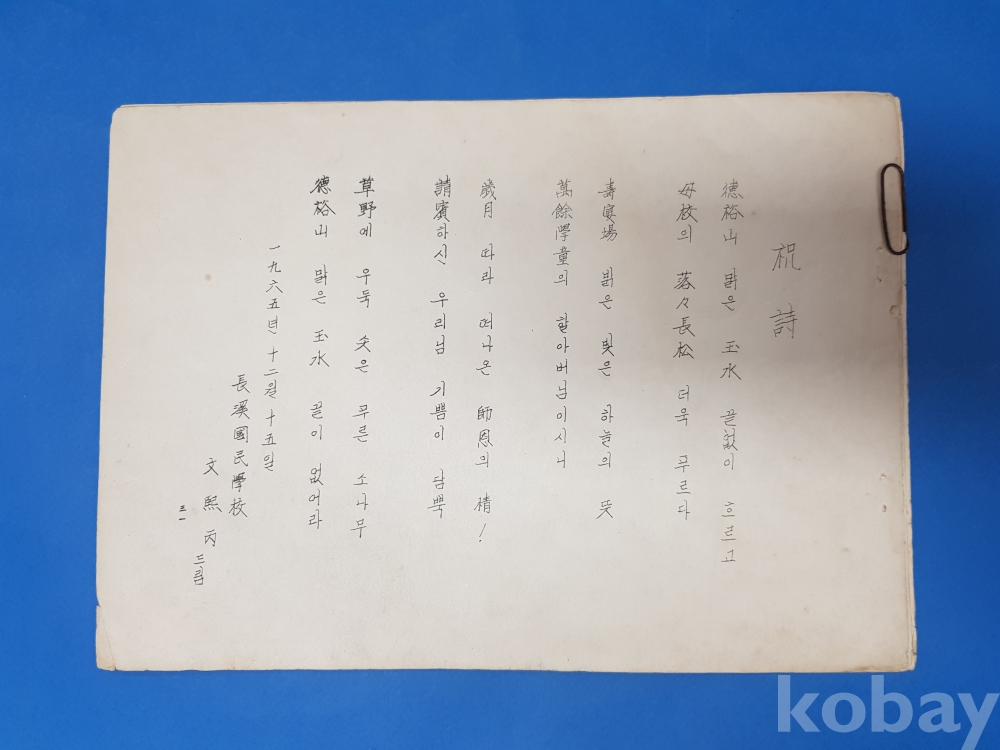 祝詩
德裕山 맑은 玉水 끝없이 흐르고
母校의 落々長松 더욱 푸르다
壽宴場 밝은 빛은 하늘의 뜻
萬餘學童의 할아버님이시니
歲月 따라 떠나온 師恩의 情!
請賓하신 우리님 기쁨이 담뿍
草野에 우둑 솟은 푸른 소나무
德裕山 맑은 玉水 끝이 없어라
一九六五년 十二월 十五일
長溪國民學校
文熙丙 드림
三一
kobay